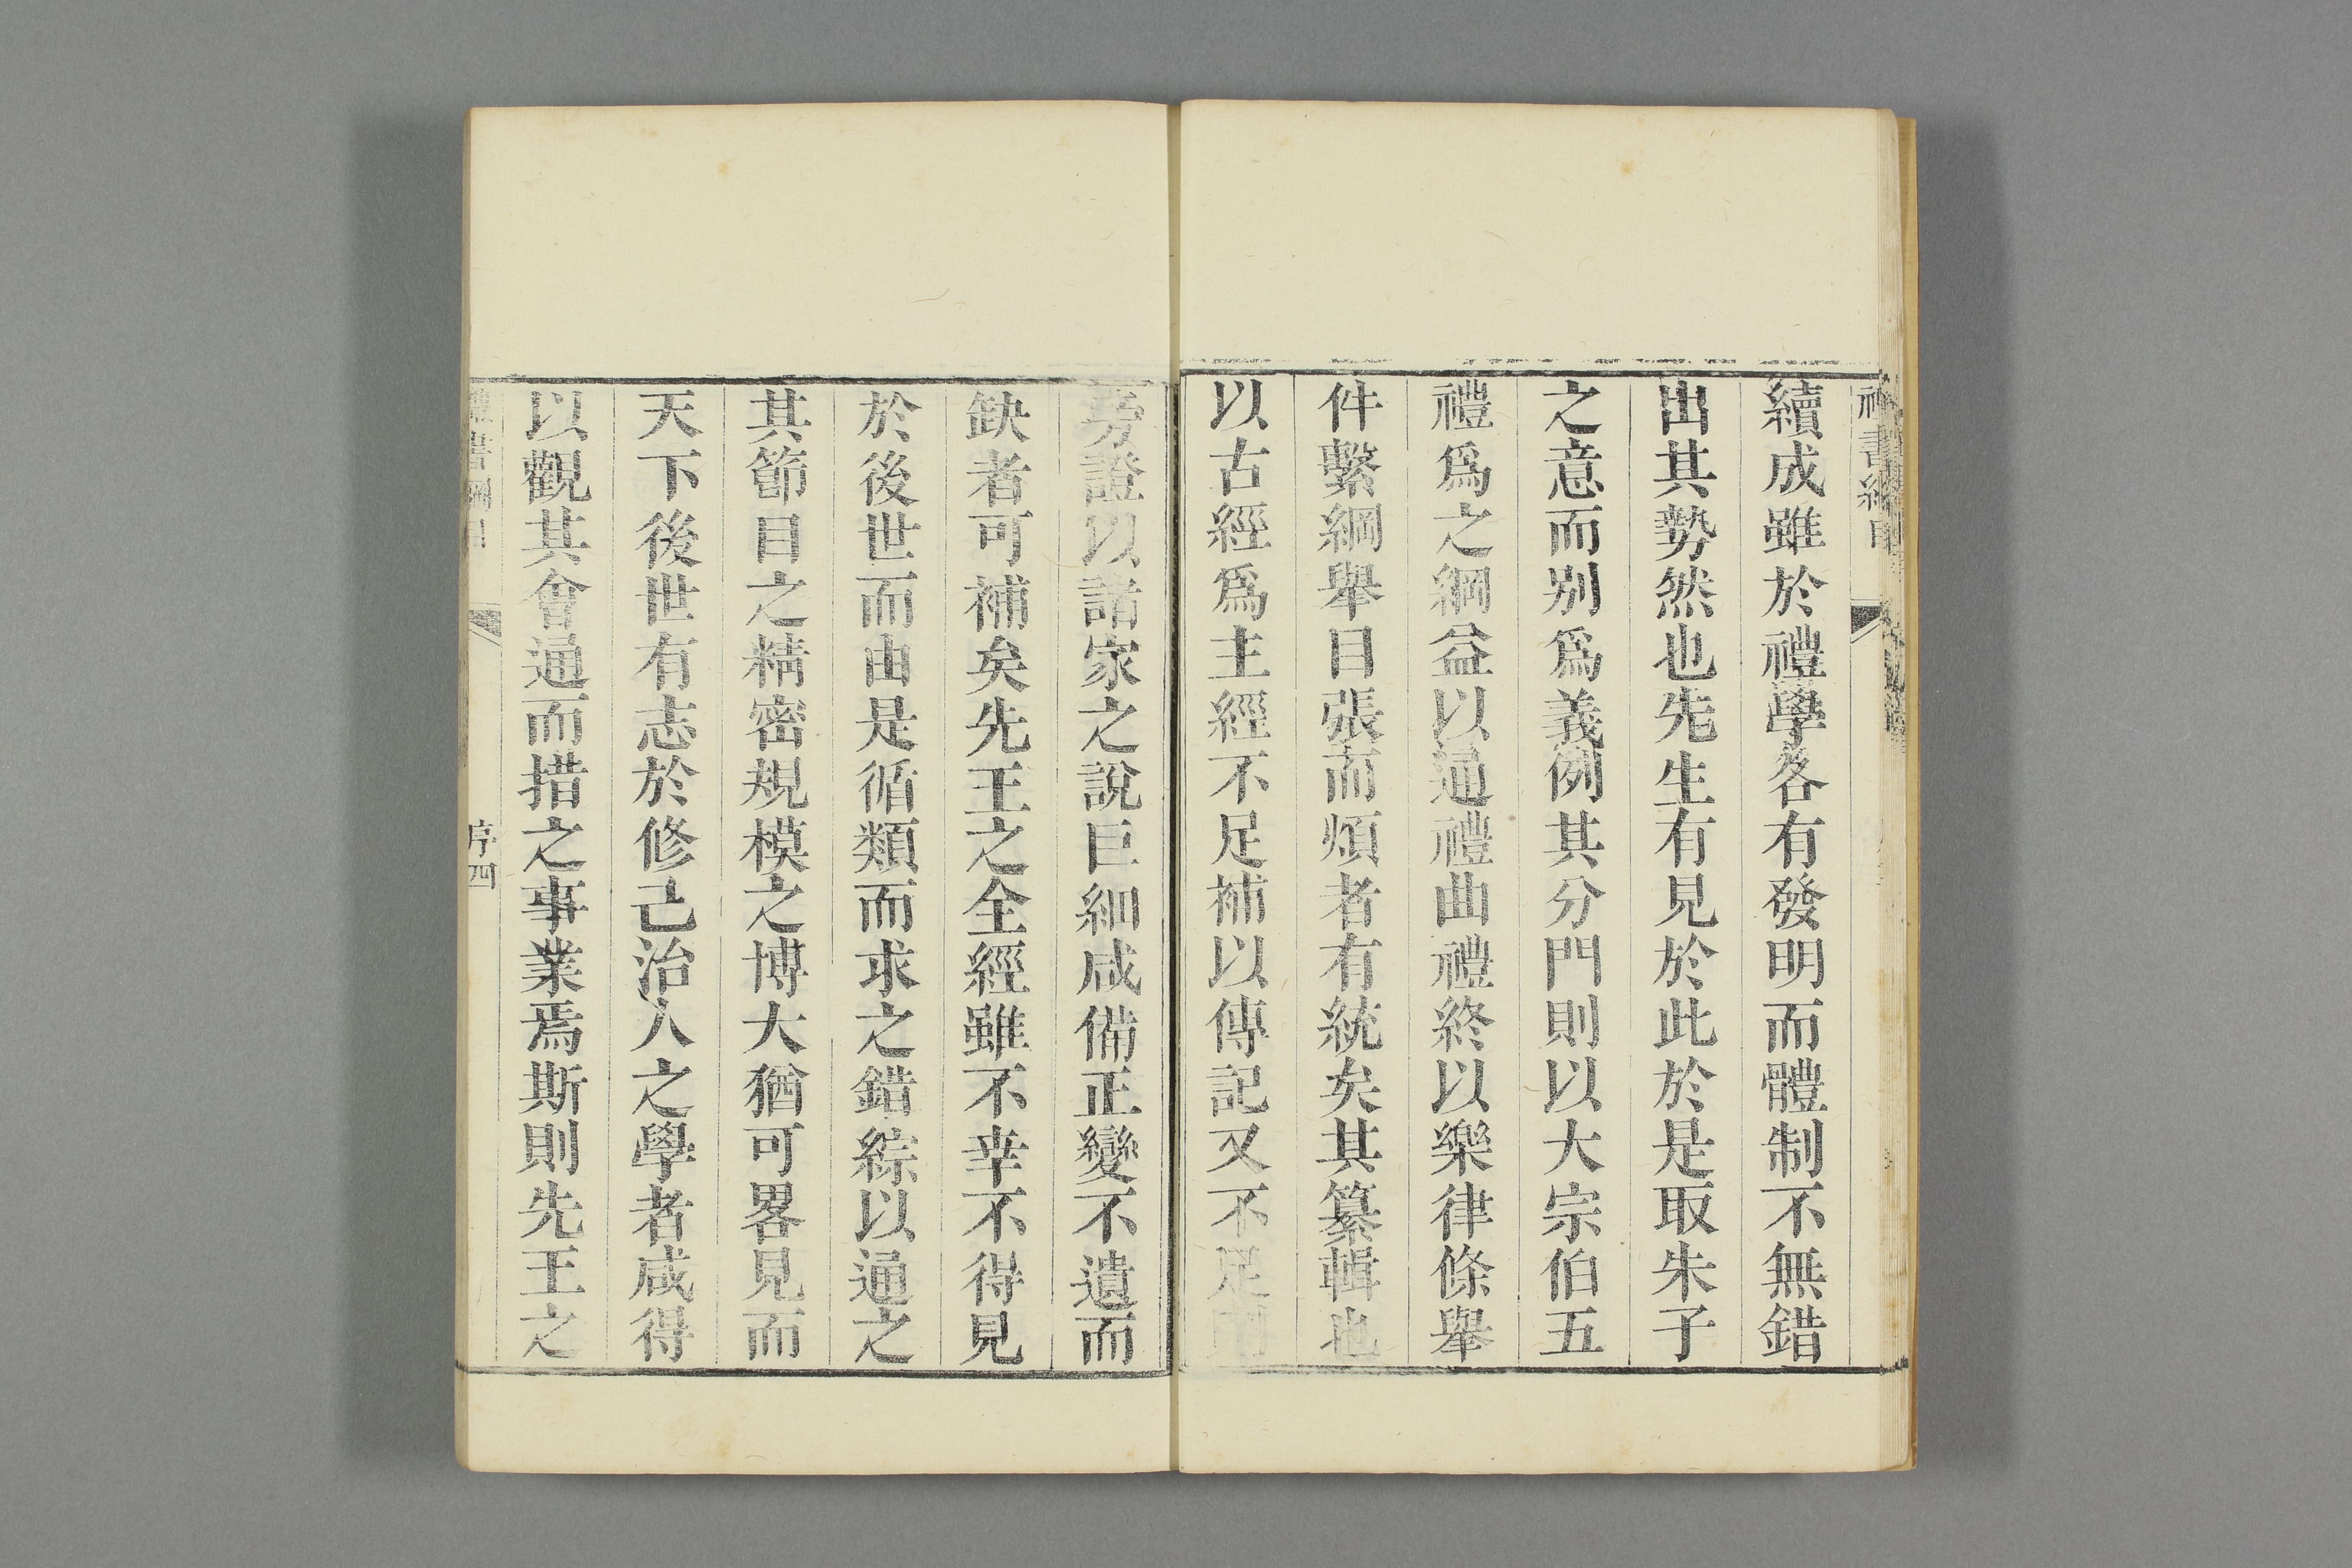 禮書綱目
續成雖於禮學各有發明而體制不無錯
出其勢然也先生有見於此於是取朱子
之意而別爲義例其分門則以大宗伯五
禮爲之綱益以通禮曲禮終以樂律條舉
件繫綱舉目張而煩者有統矣其纂輯也
以古經爲主經不足補以傳記又不足則
旁證以諸家之說巨細咸備正變不遺而
缺者可補矣先王之全經雖不幸不得見
於後世而由是循類而求之錯綜以通之
其節目之精密規模之博大猶可畧見而
天下後世有志於修己治人之學者咸得
以觀其會通而措之事業焉斯則先王之
禮書綱目 序四